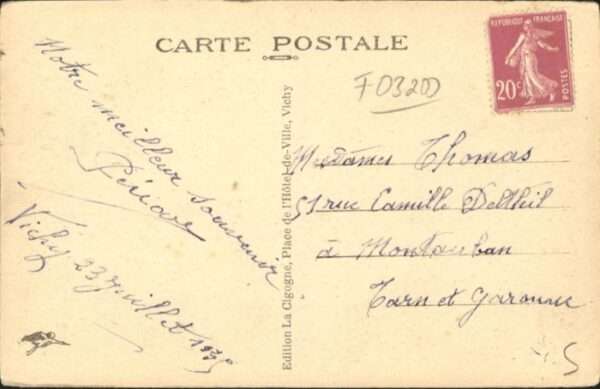 CARTE POSTALE
REPUBLIQUE FRANÇAISE
20c
POSTES
F0320
Notre meilleur souvenir
Vichy 23 Juillet 1935
Edition La Cigogne, Place de l'Hôtel-de-Ville, Vichy
Mesdames Thomas
51 rue Camille Deltheil
à Montauban
Tarn et Garonne